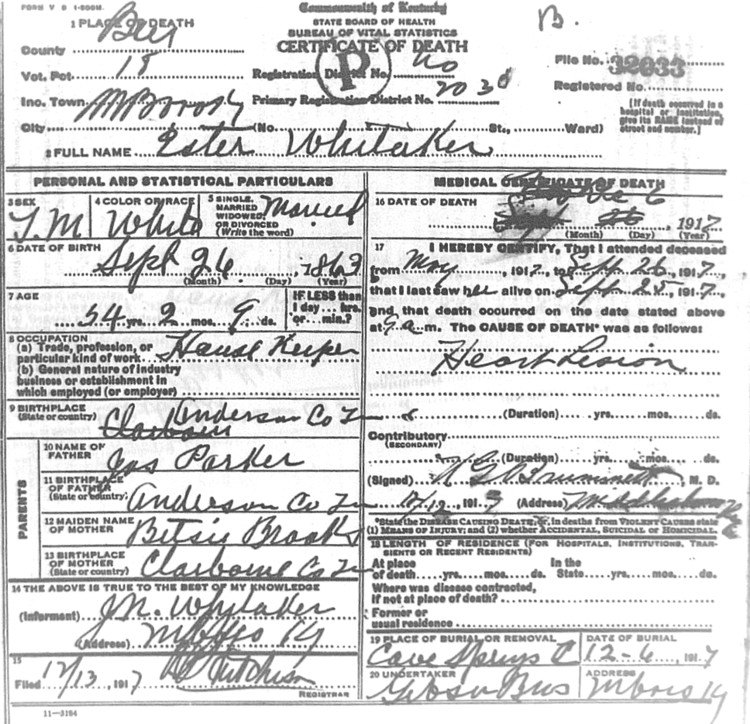 FORM V S 1-500M.
Commonwealth of Kentucky
B.
1 PLACE OF DEATH
STATE BOARD OF HEALTH
BUREAU OF VITAL STATISTICS
CERTIFICATE OF DEATH
County Bell
Vot. Pct 18
Registration District No. 40
File No. 32933
Registered No.
Inc. Town M Boro Ky
Primary Registration District No. 2030
[If death occurred in a hospital or institution, give its NAME instead of street and number.]
City (No. St., Ward)
2 FULL NAME Ester Whitaker
PERSONAL AND STATISTICAL PARTICULARS
3 SEX
4 COLOR OR RACE White
5 SINGLE, MARRIED WIDOWED, OR DIVORCED (Write the word) Married
6 DATE OF BIRTH
Sept 26, 1863
(Month) (Day) (Year)
7 AGE
54 yrs. 2 mos. 9 ds.
IF LESS than 1 day... hrs. or... min.?
8 OCCUPATION
(a) Trade, profession, or particular kind of work House Keeper
(b) General nature of industry
business or establishment in
which employed (or employer)
9 BIRTHPLACE
(State or country) Claiborn Anderson Co Tn
PARENTS
10 NAME OF FATHER Jas Parker
11 BIRTHPLACE OF FATHER
(State or country) Anderson Co Tn
12 MAIDEN NAME OF MOTHER Betsie Brooks
13 BIRTHPLACE OF MOTHER
(State or country) Claiborne Co Tn
14 THE ABOVE IS TRUE TO THE BEST OF MY KNOWLEDGE
(Informent) J.N. Whitaker
(Address) Mboro Ky
15
Filed 12/13, 1917
REGISTRAR
11-3184
MEDICAL CERTIFICATE OF DEATH
16 DATE OF DEATH
Dec 6 26, 1917
(Month) (Day) (Year)
17 I HEREBY CERTIFY, That I attended deceased
from May, 1917, to Sept 26, 1917,
that I last saw her alive on Sept 25, 1917,
and that death occurred on the date stated above
at 9 a.m. The CAUSE OF DEATH* was as follows:
Heart Lesion
(Duration) yrs. mos. ds.
Contributory
(SECONDARY)
(Duration) yrs. mos. ds.
(Signed) Brummett, M. D.
12/12, 191 (Address) Middlesboro Ky
*State the DISEASE CAUSING DEATH, or, in deaths from VIOLENT CAUSES state
(1) MEANS OF INJURY; and (2) whether ACCIDENTAL, SUICIDAL or HOMICIDAL.
18 LENGTH OF RESIDENCE (FOR HOSPITALS, INSTITUTIONS, TRANSIENTS OR RECENT RESIDENTS)
At place of death yrs. mos. ds. In the State yrs. mos. ds.
Where was disease contracted,
if not at place of death?
Former or
usual residence
19 PLACE OF BURIAL OR REMOVAL
Cave Springs C
DATE OF BURIAL
12-6, 1917
20 UNDERTAKER
Gibson Bros
ADDRESS
Mboro Ky